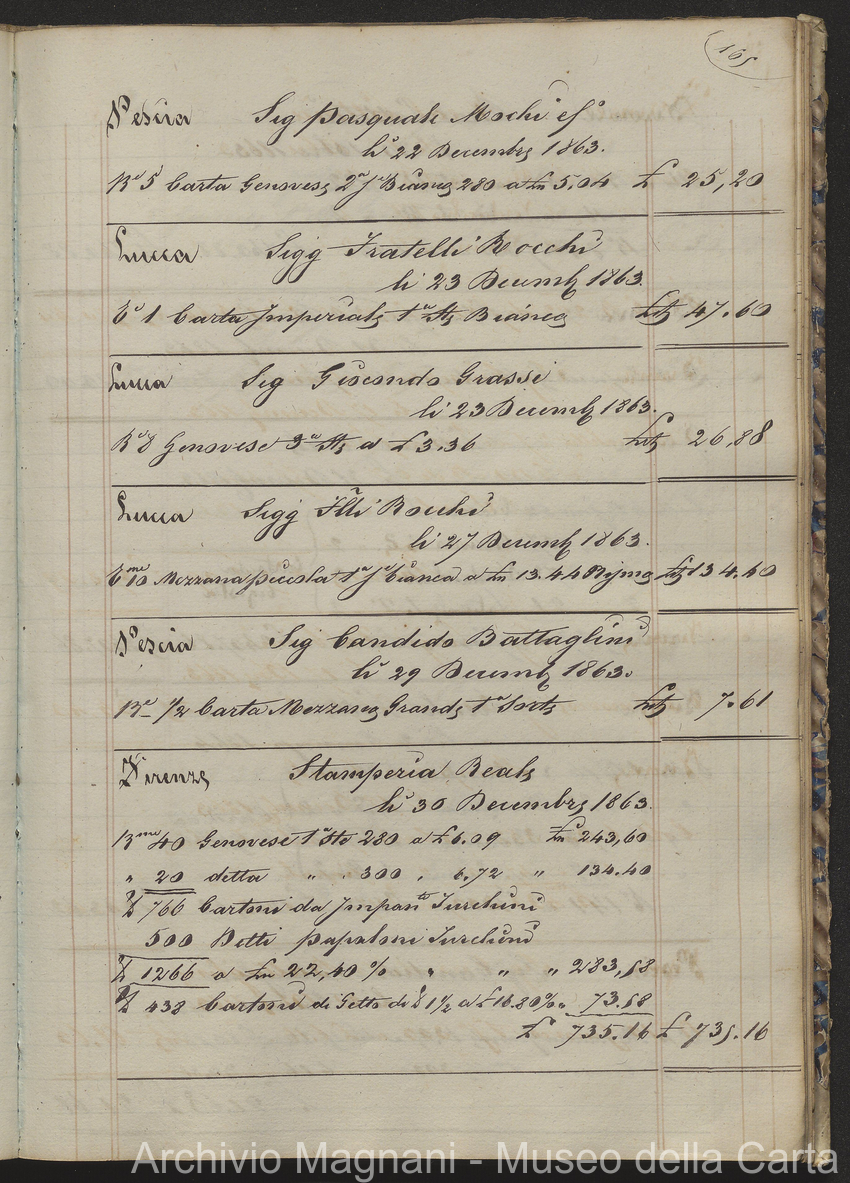 165
Pescia Sig Pasquale Mochi
li 22 Decembre 1863.
R.e 5 Carta Genovese 2a Bianca 280 a Ln 5.04 £ 25,20
Lucca Sigg Fratelli Rocchi
li 23 Decembe 1863.
1 Carta Imperiale 1a Ste Bianca 47.60
Lucca Sig Giocondo Grassi
li 23 Decembe 1863.
R.e 8 Genovese 3a Ste a £ 3.36 26,88
Lucca Sigg Flli Rocchi
li 27 Decembe 1863.
10 Mezzana piccola 1a bianca a Ln 13.44 Risma 134.40
Pescia Sig Candido Battaglini
li 29 Decembe 1863.
R.a 1/2 Carta Mezzana Grande 1a Sorte 7.61
Firenze Stamperia Reale
li 30 Decembre 1863.
R.me 40 Genovese 1a Ste 280 a £ 6.09 Ln 243,60
" 20 detta " 300 " 6.72 " 134.40
766 Cartoni da Turchini
500 Detti papaloni Turchini
1266 a Ln 22,40 % " " " 283,58
438 Cartoni di Getto di 1 1/2 a £ 16.80 % " 73.58
£ 735.16 £ 735.16
Archivio Magnani - Museo della Carta